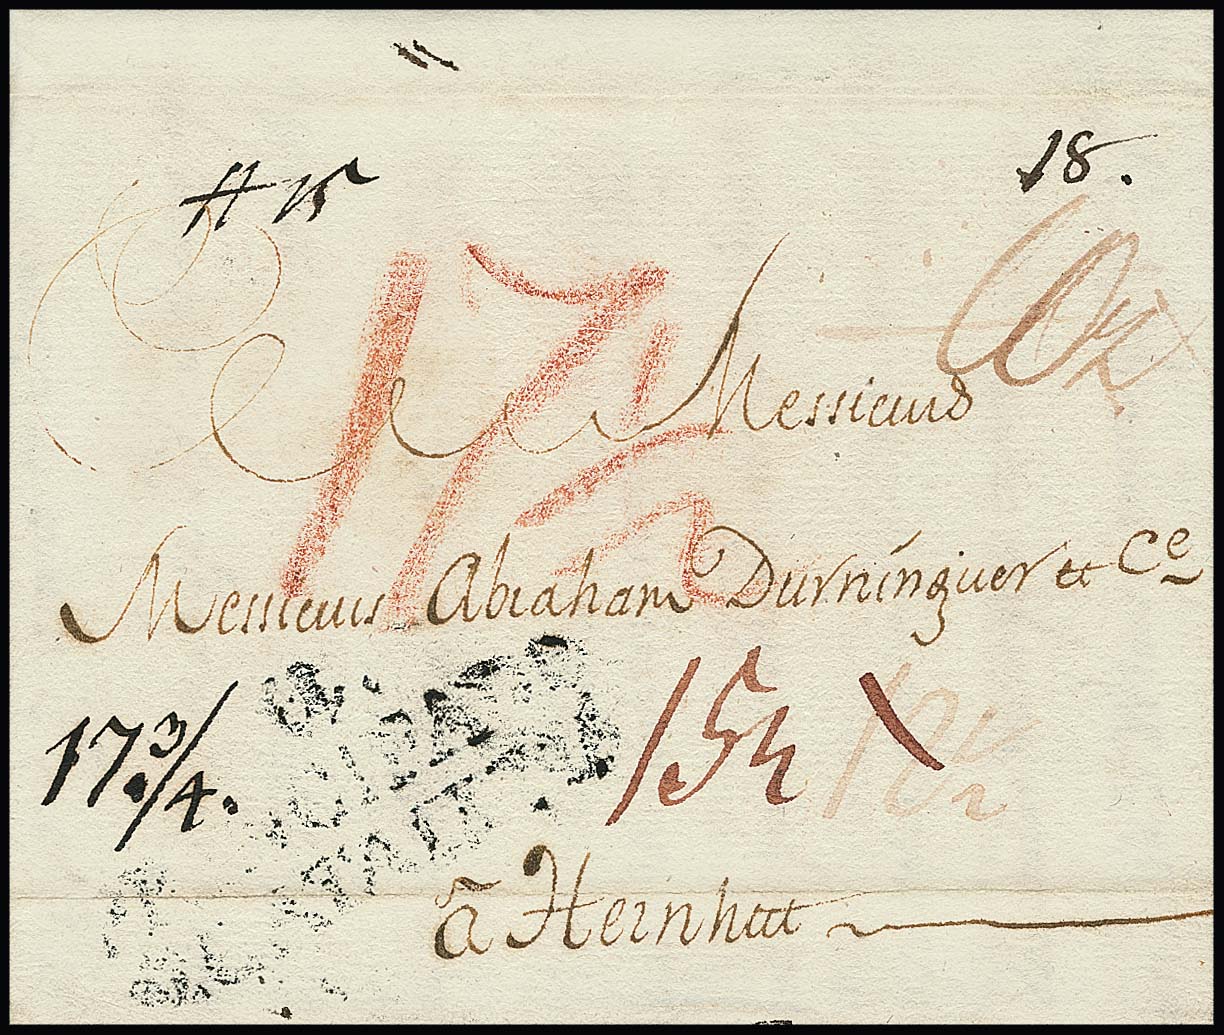 # 15
18.
17 1/2
Messieurs
Messieurs Abraham Durninguer et Ce
17 3/4.
15½
à Heinhutt